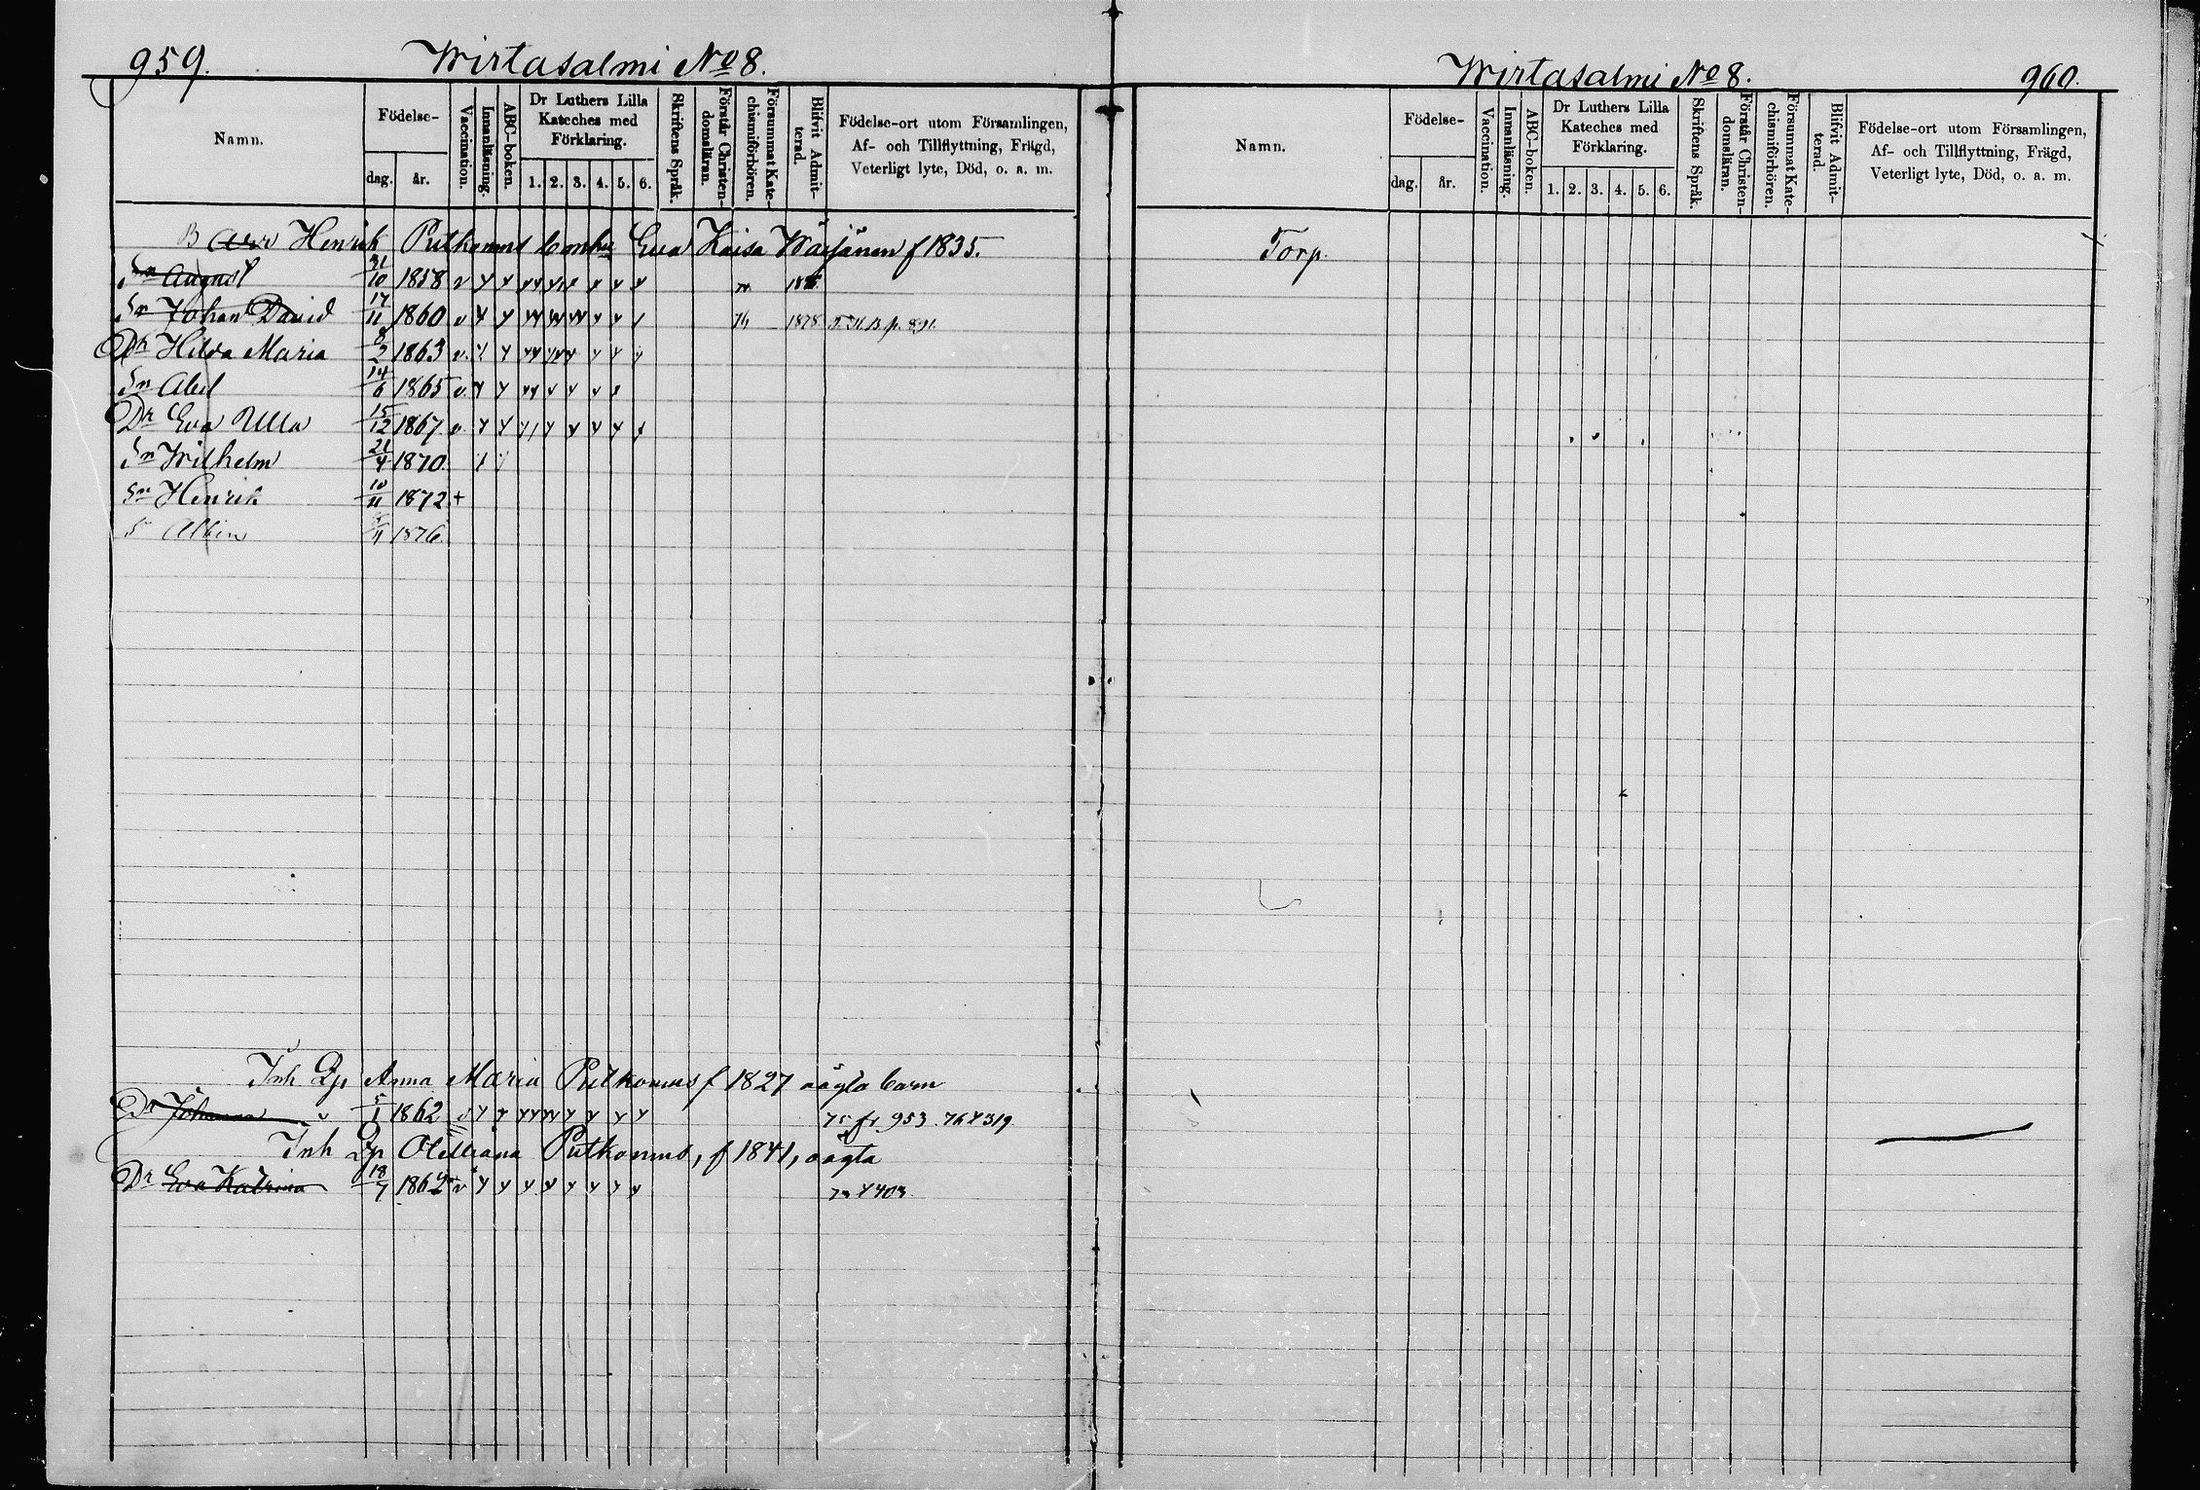 959.
Wirtasalmi No 8.
Namn.
Födelse-
dag.
år.
Vaccination.
Innanläsning.
ABC-boken.
Dr Luthers Lilla
Kateches med
Förklaring.
1. 2. 3. 4. 5. 6.
Skriftens Språk.
Förstår Christen-
domsläran.
Försummat Kate-
chismiförhören.
Blifvit Admit-
terad.
Födelse-ort utom Församlingen,
Af- och Tillflyttning, Frägd,
Veterligt lyte, Död, o. a. m.
Henrik Putkonens Eva Kaisa f 1835.
Sn August 31/10 1858
Sn Johan David 17/11 1860 v 1878
Dr Hilda Maria 1863 v.
Sn Abel 14/6 1865 v.
Dr Eva Ulla 15/12 1867 v.
Sn Wilhelm 21/4 1870
Sn Henrik 10/11 1872 +
Sn Albin 1876
Inh Anna Maria Putkonens f 1827 oägta barn
Dr Johanna 5/1 1862 v 75 fr 953. 319
Inh Putkonens, f 1841, oägta
Dr Eva Katrina 18/7 1862
Wirtasalmi No 8.
960.
Namn.
Födelse-
dag.
år.
Vaccination.
Innanläsning.
ABC-boken.
Dr Luthers Lilla
Kateches med
Förklaring.
1. 2. 3. 4. 5. 6.
Skriftens Språk.
Förstår Christen-
domsläran.
Försummat Kate-
chismiförhören.
Blifvit Admit-
terad.
Födelse-ort utom Församlingen,
Af- och Tillflyttning, Frägd,
Veterligt lyte, Död, o. a. m.
Torp.